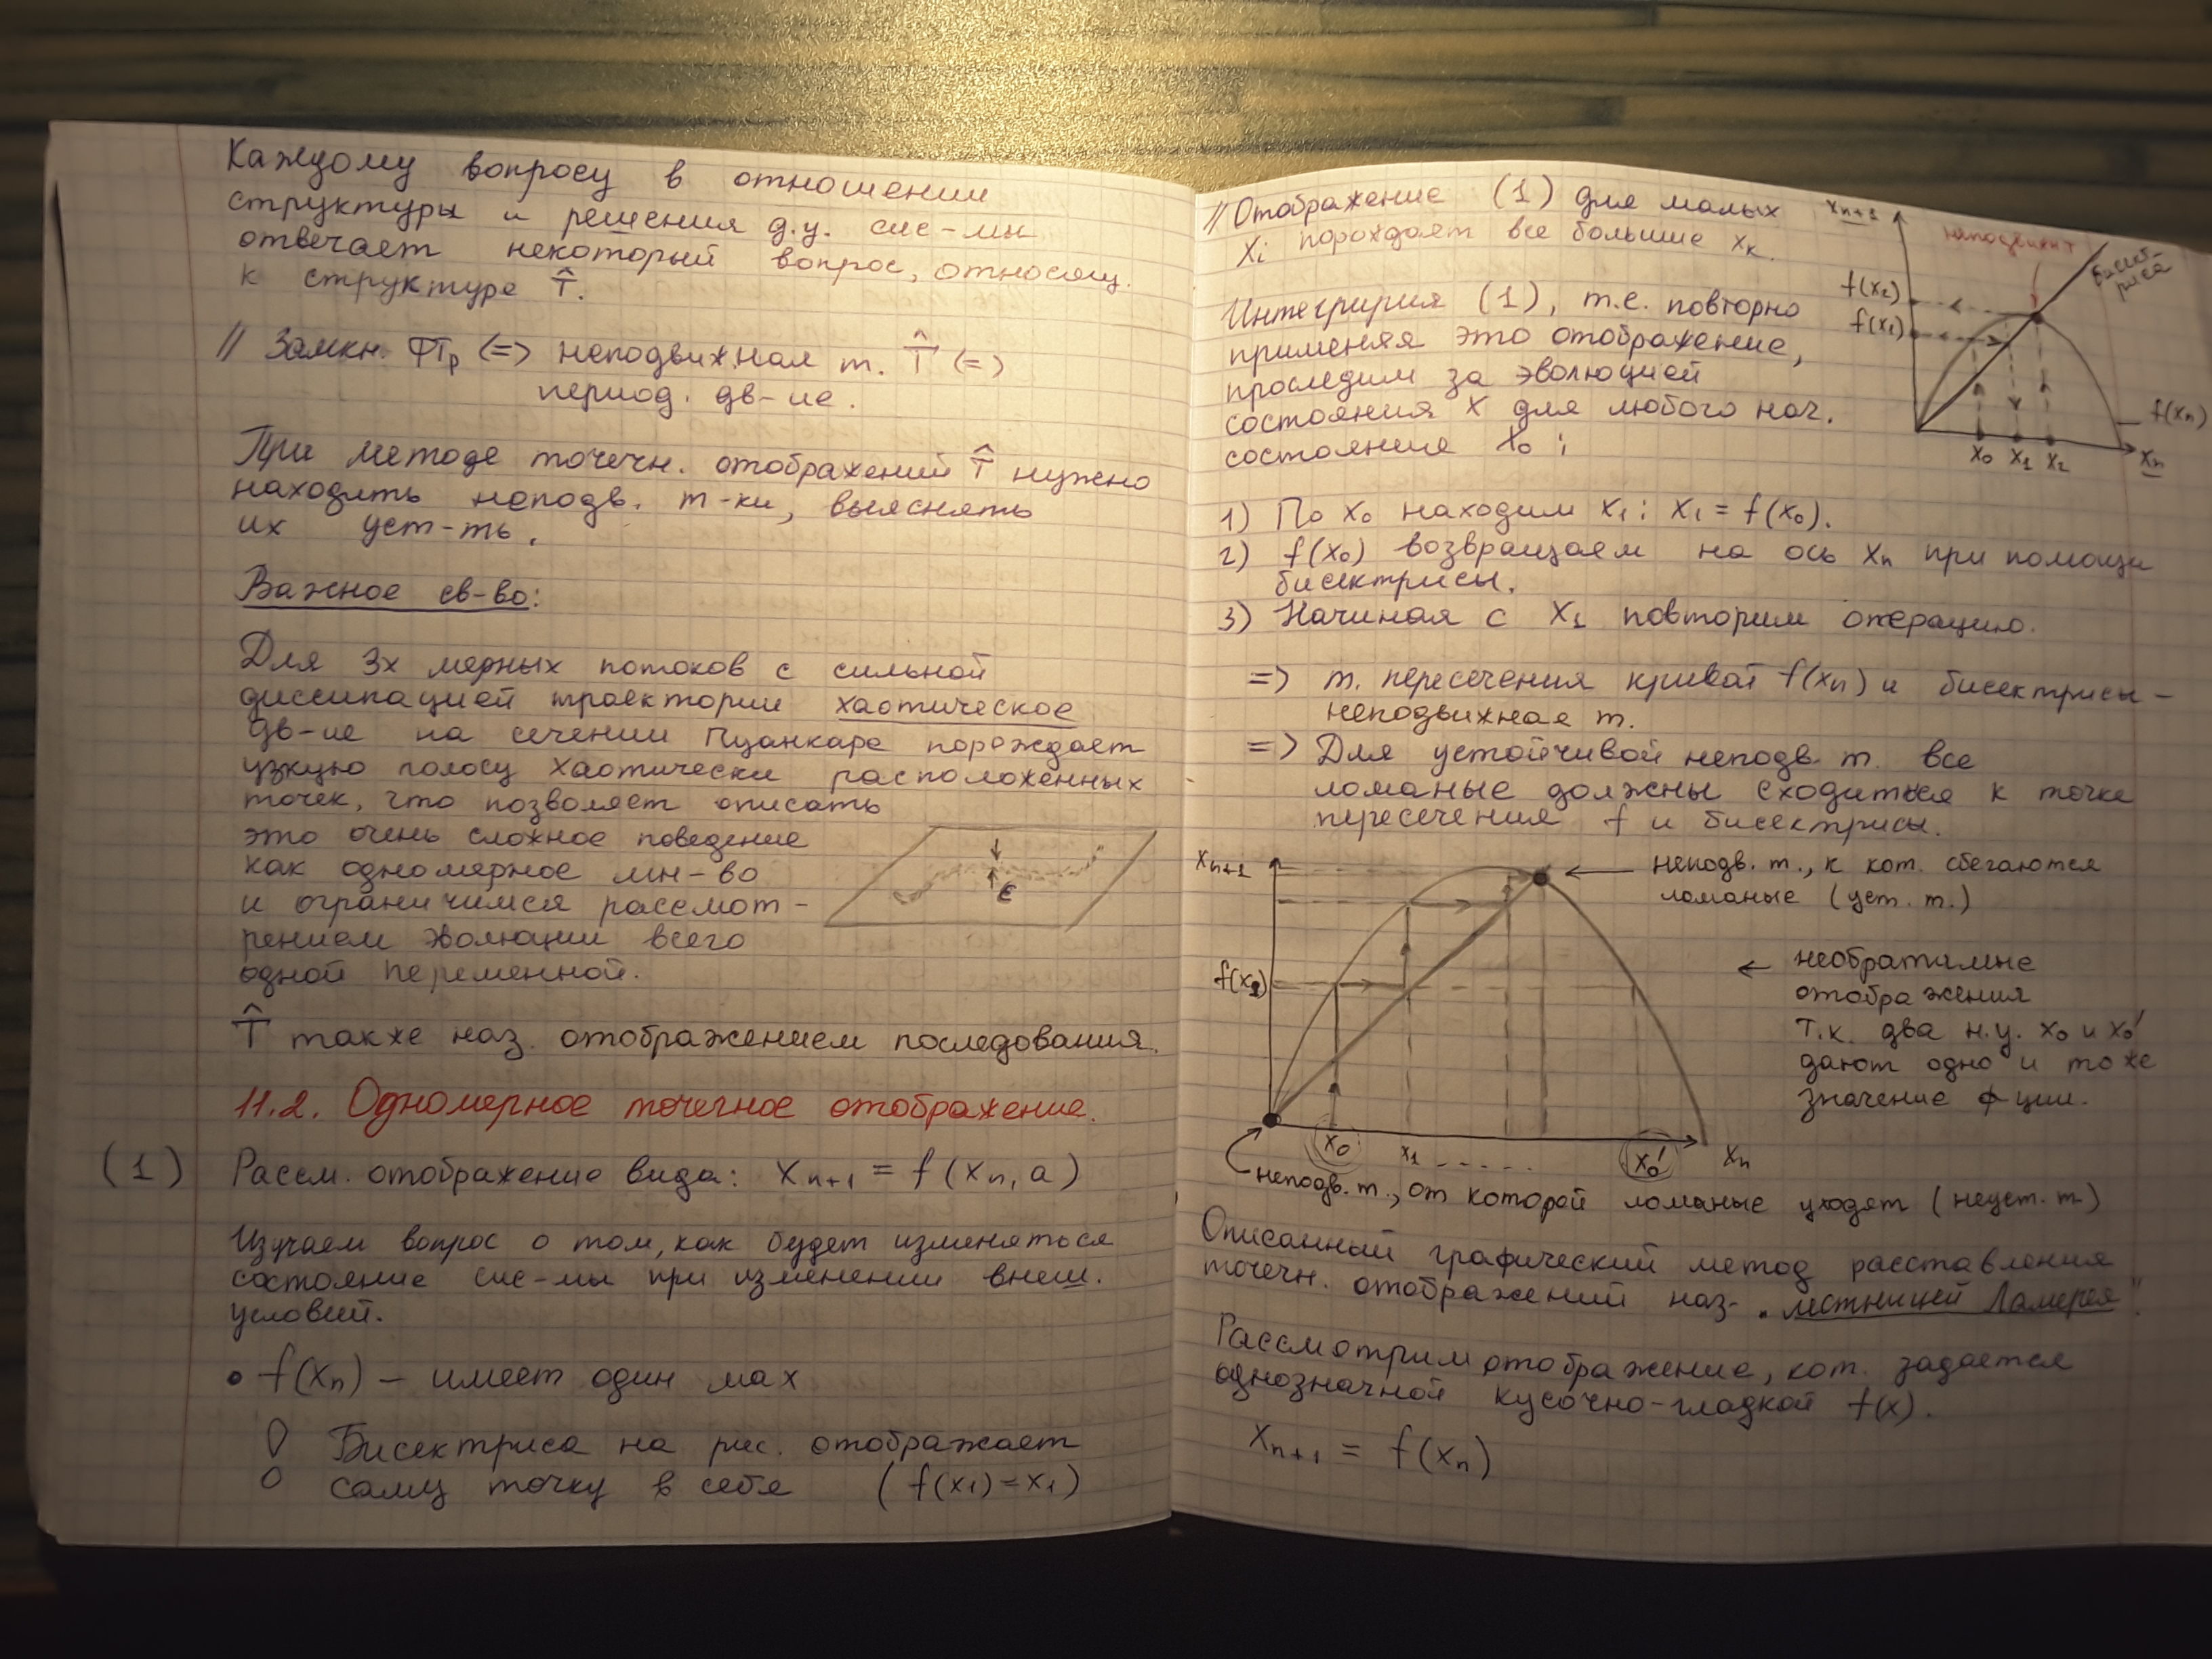 Каждому вопросу в отношении
структуры и решения д.у. сис-мы
отвечает некоторый вопрос, относящ.
к структуре T̂.
// Замкн. ФТр (=) неподвижная т. T̂ (=)
период. дв-ие.
При методе точечн. отображений T̂ нужно
находить неподв. т-ки, выяснять
их уст-ть.
Важное св-во:
Для 3х мерных потоков с сильной
диссипацией траектории хаотическое
дв-ие на сечении Пуанкаре порождает
узкую полосу хаотически расположенных
точек, что позволяет описать
это очень сложное поведение
как одномерное мн-во
и ограничимся рассмот-
рением эволюции всего
одной переменной.
ε
T̂ также наз. отображением последования.
11.2. Одномерное точечное отображение.
(1) Рассм. отображение вида: Xn+1 = f(Xn, a)
Изучаем вопрос о том, как будет изменяться
состояние сис-мы при изменении внеш.
условий.
• f(Xn) – имеет один мах
! Бисектриса на рис. отображает
саму точку в себя (f(x1)=x1)
// Отображение (1) для малых
Xi порождает все большие Xk.
Интегрируя (1), т.е. повторно
применяя это отображение,
проследим за эволюцией
состояния X для любого нач.
состояние X0:
Xn+1
неподвижт
бисект-
риса
f(X2)
f(X1)
f(Xn)
X0 X1 X2 Xn
1) По X0 находим X1: X1 = f(X0).
2) f(X0) возвращаем на ось Xn при помощи
бисектрисы.
3) Начиная с X1 повторим операцию.
=> т. пересечения кривой f(Xn) и бисектрисы –
неподвижная т.
=> Для устойчивой неподв. т. все
ломаные должны сходиться к точке
пересечения f и бисектрисы.
Xn+1
неподв. т., к кот. сбегаются
ломаные (уст. т.)
необратимые
отображения
т.к. два н.у. X0 и X0'
дают одно и тоже
значение ф ции.
X0 X1 ----- X0' Xn
неподв. т., от которой ломаные уходят (неуст. т.)
Описанный графический метод расставления
точечн. отображений наз- „лестницей Ламерея".
Рассмотрим отображение, кот. задается
однозначной кусочно-гладкой f(x).
Xn+1 = f(Xn)